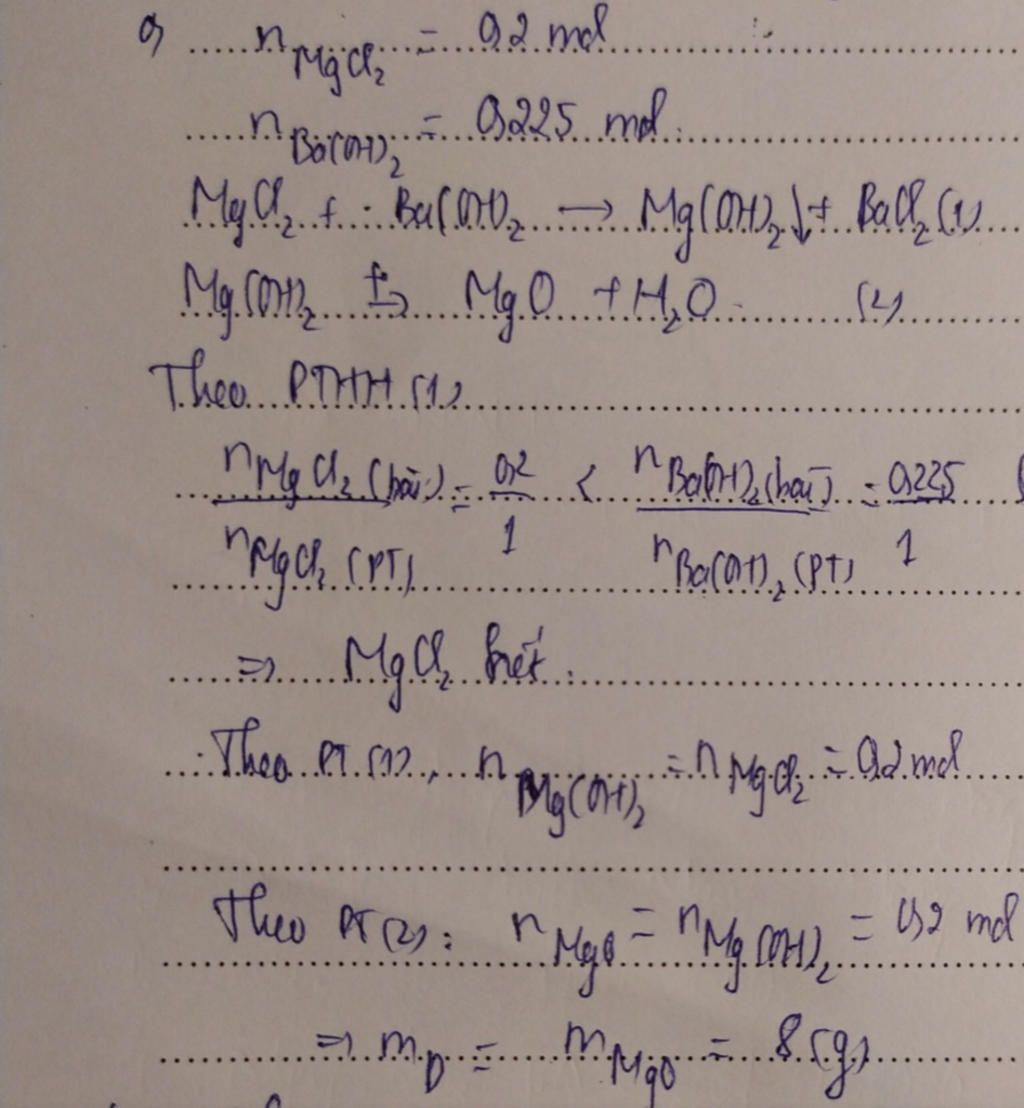 a) n MgCl₂ = 0,2 mol
n Ba(OH)₂ = 0,225 mol.
MgCl₂ + Ba(OH)₂ → Mg(OH)₂↓ + BaCl₂ (1)
Mg(OH)₂ t°→ MgO + H₂O. (2)
Theo PTHH (1)
n MgCl₂ (bài) / n MgCl₂ (PT) = 0,2/1 < n Ba(OH)₂ (bài) / n Ba(OH)₂ (PT) = 0,225/1
=> MgCl₂ hết.
Theo PT (1), n Mg(OH)₂ = n MgCl₂ = 0,2 mol
Theo PT (2): n MgO = n Mg(OH)₂ = 0,2 mol
=> m D = m MgO = 8 (g)